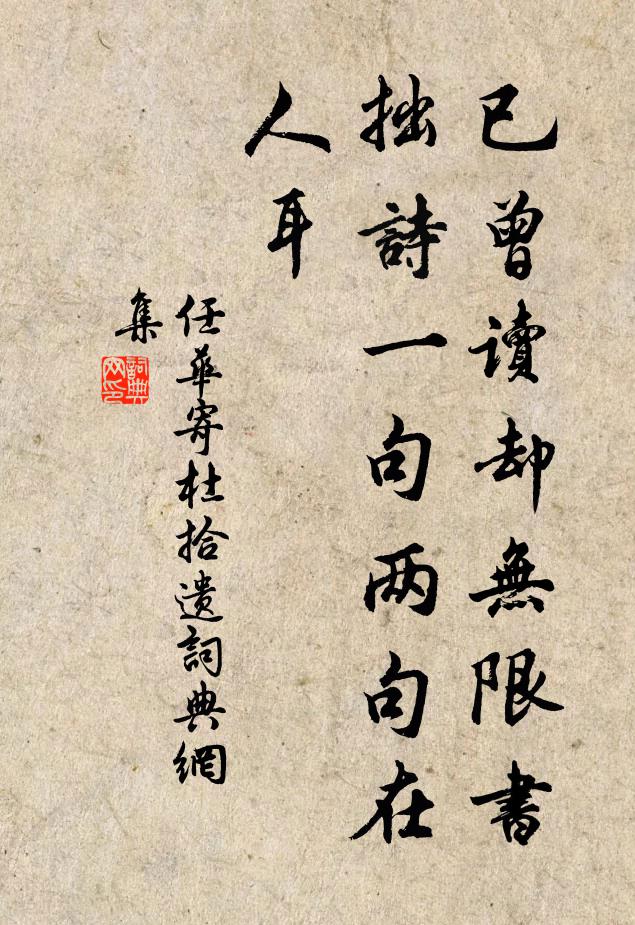 已曾讀却無限書
拙詩一句两句在
人耳
任華寄杜拾遗詞典網
集
詞典网印